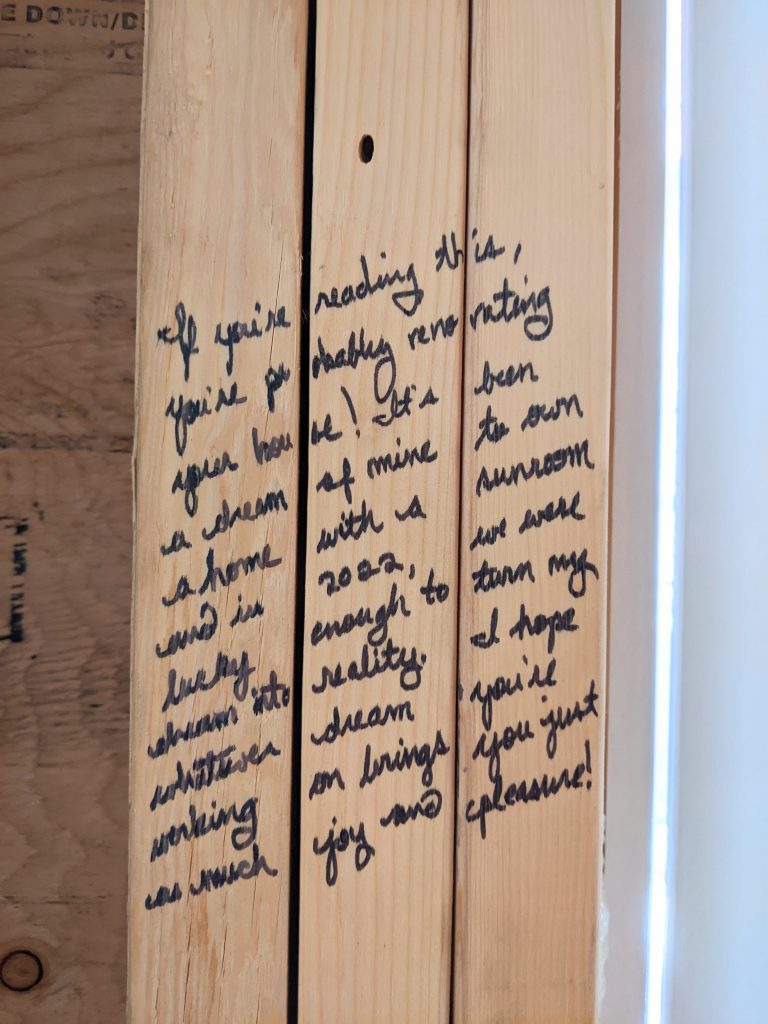 E DOWN/D
If you're reading this,
you're probably renovating
your house! It's been
a dream of mine to own
a home with a sunroom
and in 2022, we were
lucky enough to turn my
dream into reality. I hope
whatever dream you're
working on brings you just
as much joy and pleasure!